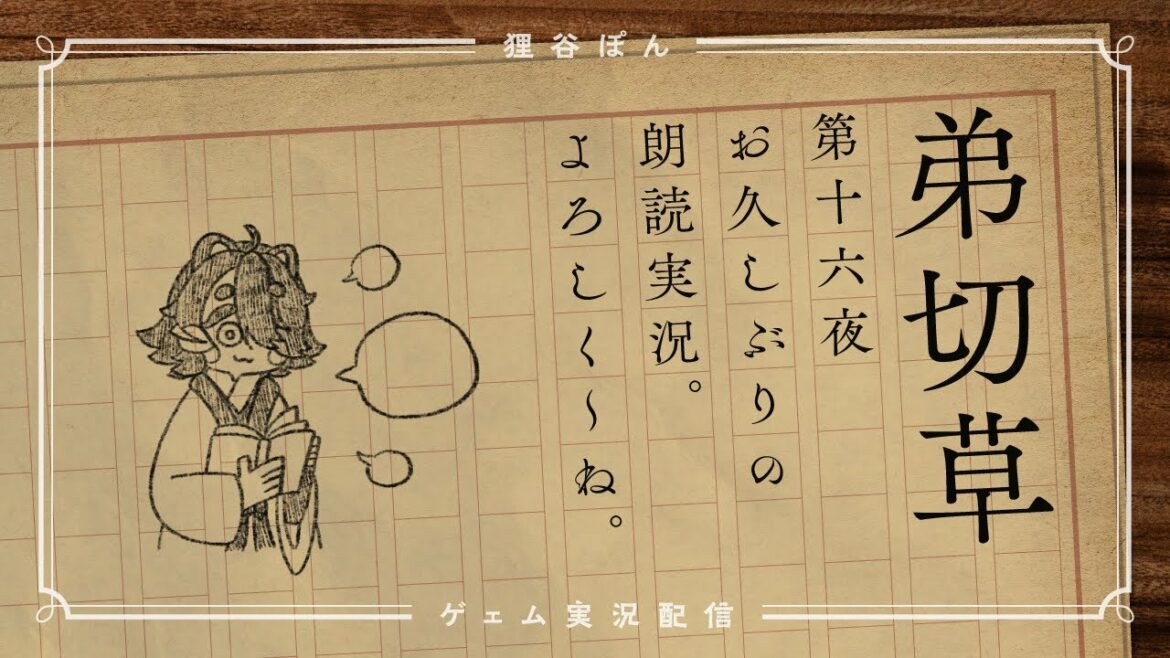 狸谷ぽん
弟切草
第十六夜
お久しぶりの
朗読実況。
よろしく〜ね。
ゲェム実況配信